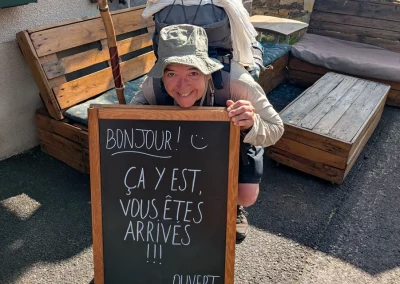 BONJOUR! :)
ÇA Y EST,
VOUS ÊTES
ARRIVÉS
!!!
OUVERT